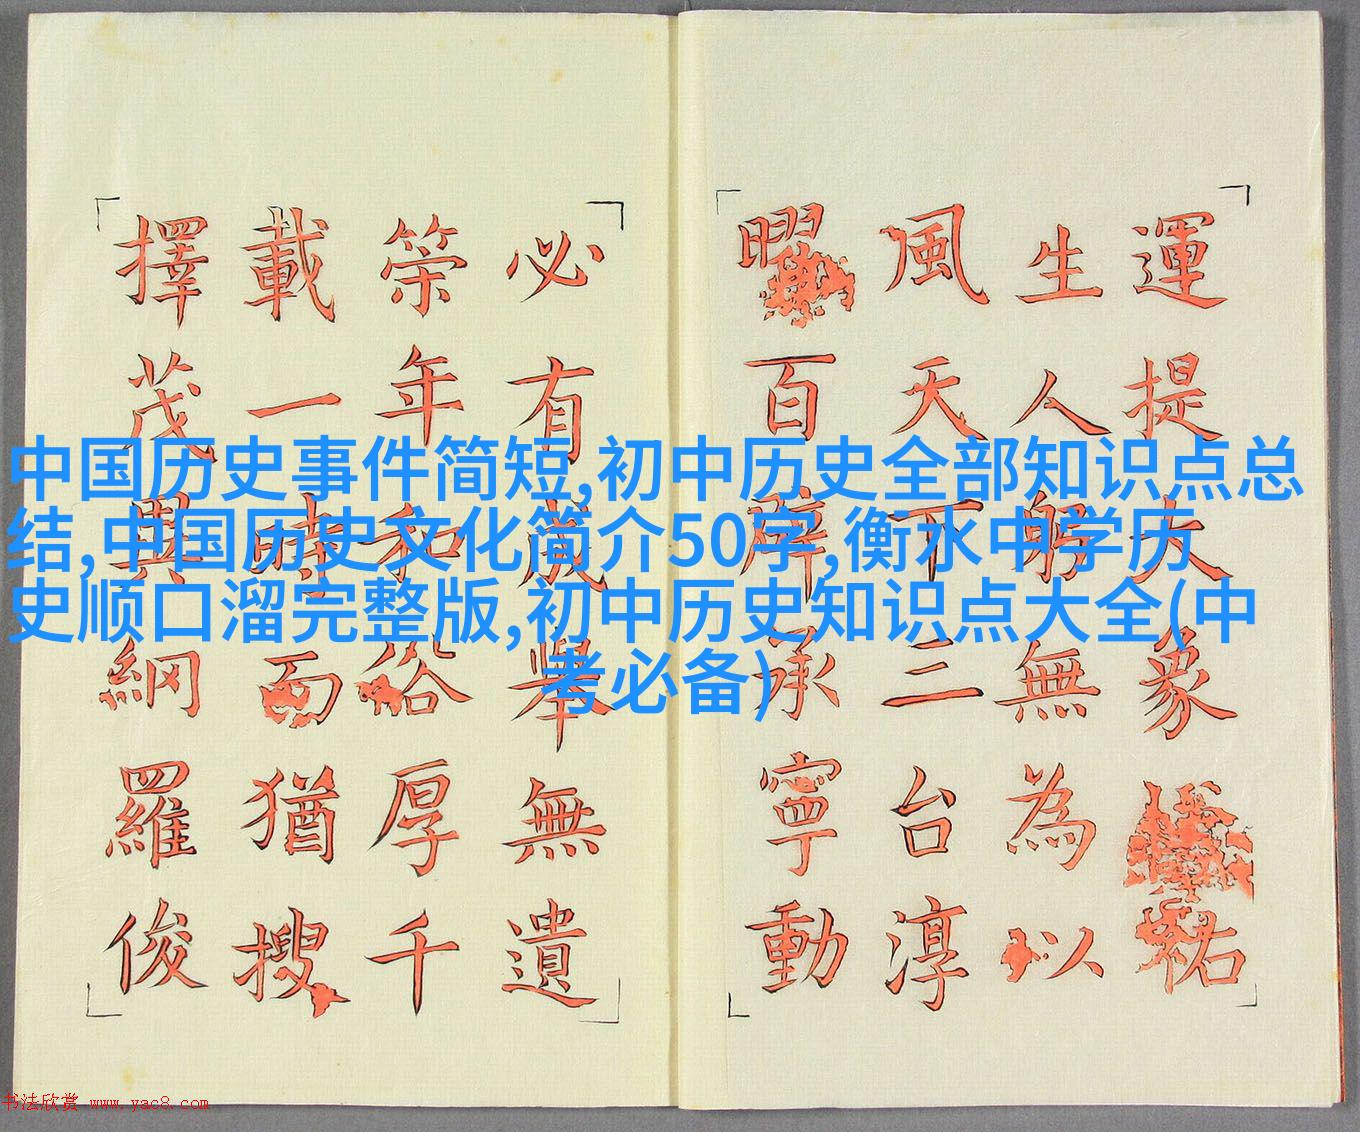 中国历史事件简短,初中历史全部知识点总
结,中国历史文化简介50字,衡水中学历
史顺口溜完整版,初中历史知识点大全(中
考必备)
運提大象祐
生人無為以
風天下三台淳
曜百辟承寧動
必有舉無遺
筞年和俗厚千
載一時而猶搜
擇茂異網羅俊
书法欣赏 www.yac8.com